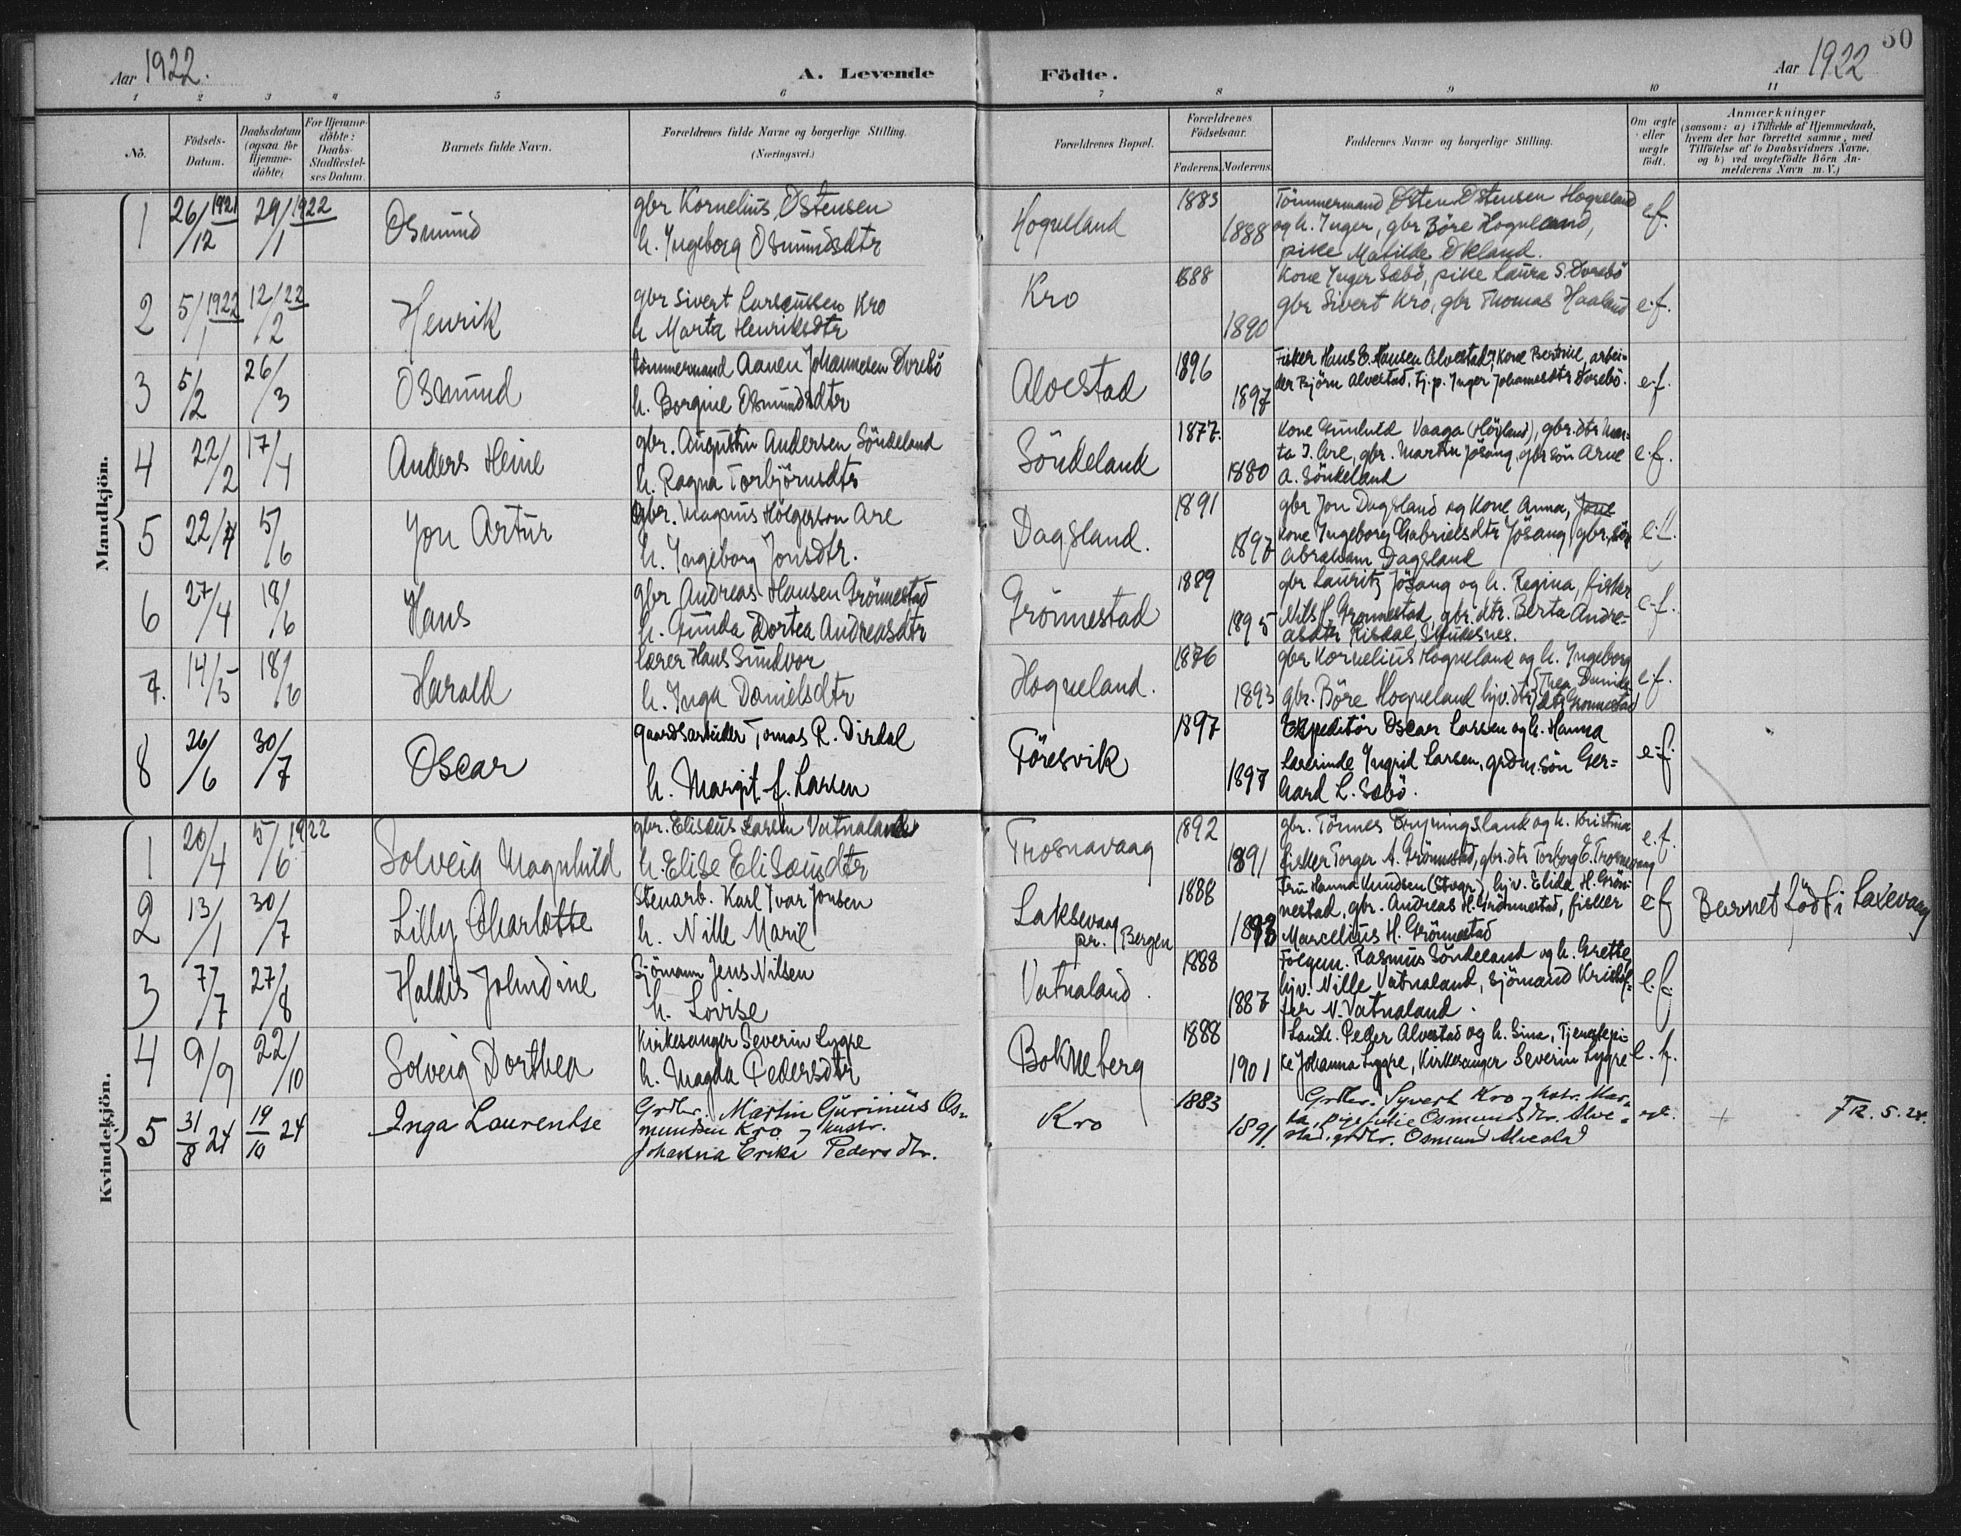 50
Aar 1922.
A. Levende Födte.
Aar 1922
1 2 3 4 5 6 7 8 9 10 11
No.
Födsels-Datum.
Daabsdatum (ogsaa for Hjemme-döbte)
For Hjemme-döbte: Daabs-Stadfæstel-ses Datum.
Barnets fulde Navn.
Forældrenes fulde Navne og borgerlige Stilling. (Næringsvei.)
Forældrenes Bopæl.
Forældrenes Födselsaar.
Faderens. Moderens.
Faddernes Navne og borgerlige Stilling.
Om ægte eller uægte födt.
Anmærkninger
(saasom: a) i Tilfælde af Hjemmedaab,
hvem der har forrettet samme, med
Tilföielse af to Daabsvidners Navne,
og b) ved uægtefödte Börn An-
melderens Navn m. V.)
Mandkjön.
1 26/12 1921 29/1 1922 Osmund
gbr Kornelius Östensen
h. Ingeborg Osmundsdtr
Hogneland 1883 1888
Tömmermand Östen Östensen Hogneland
og h. Inger, gbr Böre Hogneland,
pike Matilde Økland.
e.f.
2 5/1 1922 12/2 22 Henrik
gbr Sivert Larsen Kro
h. Marta Henriksdtr
Kro 1888 1890
Kone Inger Sæbö, pike Laura S. Dvesbö
gbr Sivert Kro, gbr Thomas Haaland
e.f.
3 5/2 26/3 Osmund
Tömmermand Aanen Johannesen Dvesbö
h. Borgine Osmundsdtr
Alvestad 1896 1897
Fisker Hans E. Hansen Alvestad, Kone Bertine, arbei-
der Björn Alvestad, tj.p. Inger Johannesdtr Dvesbö.
e.f.
4 22/2 17/4 Anders Heine
gbr. Augustin Andersen Söndeland
h. Ragna Torbjörnsdtr
Söndeland 1877. 1880
Kone Gunhild Vaaga (Höyland), gbr.dtr Mar-
ta J. Are, gbr. Martin Jösang, gbr sön Arne
A. Söndeland
e.f.
5 22/4 5/6 Jon Artur
gbr. Magnus Holgerson Are
h. Ingeborg Jonsdtr.
Dagsland. 1891 1897
gbr Jon Dagsland og Kone Anna,
Kone Ingeborg Gabrielsdtr Jösang, gbr. sön
Abraham Dagsland
e.f.
6 27/4 18/6 Hans
gbr Andreas Hansen Grönnestad
h. Gunda Dortea Andreasdtr
Grönnestad 1889 1895
gbr Lauritz Jösang og h. Regina, fisker
Nils H. Grönnestad, gbr. dtr. Berta Andre-
asdtr Risdal, Skudesnes.
e.f.
7. 14/5 18/6 Harald
Lærer Hans Sundvor
h. Inga Danielsdtr
Hogneland. 1876 1893
gbr Kornelius Hogneland og h. Ingeborg
gbr. Böre Hogneland hjv. dtr Thea
Grönnestad
e.f.
8 26/6 30/7 Oscar
Gaardsarbeider Tomas R. Dirdal
h. Margit f. Larsen
Föresvik 1897 1897
Expeditör Oscar Larsen og h. Hanna
Lærerinde Ingrid Larsen, grdm.sön Ger-
hard L. Sæbö.
e.f.
Kvindekjön.
1 20/4 5/6 1922 Solveig Magnhild
gbr. Elisæus Larsen Vatnaland
h. Elise Elisæusdtr
Trosnavaag 1892 1891
gbr. Tönnes Bryningsland og h. Kristina
fisker Torger A. Grönnestad, gbr.dtr Torborg E. Trosnavaag
e.f.
2 13/1 30/7 Lilly Charlotte
Stenarb. Karl Ivar Jonsen
h. Nille Marie
Laksevaag pr. Bergen 1888 1893
Fru Hanna Knudsen (Stvgr), hjv. Elida H. Grön-
nestad, gbr. Andreas H. Grönnestad, fisker
Marcelius H. Grönnestad
e.f.
Barnet födt i Laxevaag
3 7/7 27/8 Haldis Johndine
Sjömann Jens Nilsen
h. Lovise
Vatnaland. 1888 1887
Folgem. Rasmus Söndeland og h. Grette,
hjv. Nille Vatnaland, Sjömand Kristof-
fer N. Vatnaland.
e.f.
4 9/9 22/10 Solveig Dorthea
Kirkesanger Severin Lygre
h. Magda Pedersdtr
Bokneberg 1888 1901
Landh. Peder Alvestad og h. Sina, Tjenestepi-
ke Johanna Lygre, Kirkesanger Severin Lygre
e.f.
5 31/8 24 19/10 24 Inga Laurentse
Grdbr. Martin Gurinius Os-
mundsen Kro og hustr.
Johanna Erika Pedersdtr.
Kro 1883 1891.
Grdbr. Syvert Kro og hstr. Mar-
ta, pige Julie Osmundsdtr. Alve-
stad, grdbr. Osmund Alvestad
+ FR. 5. 24.